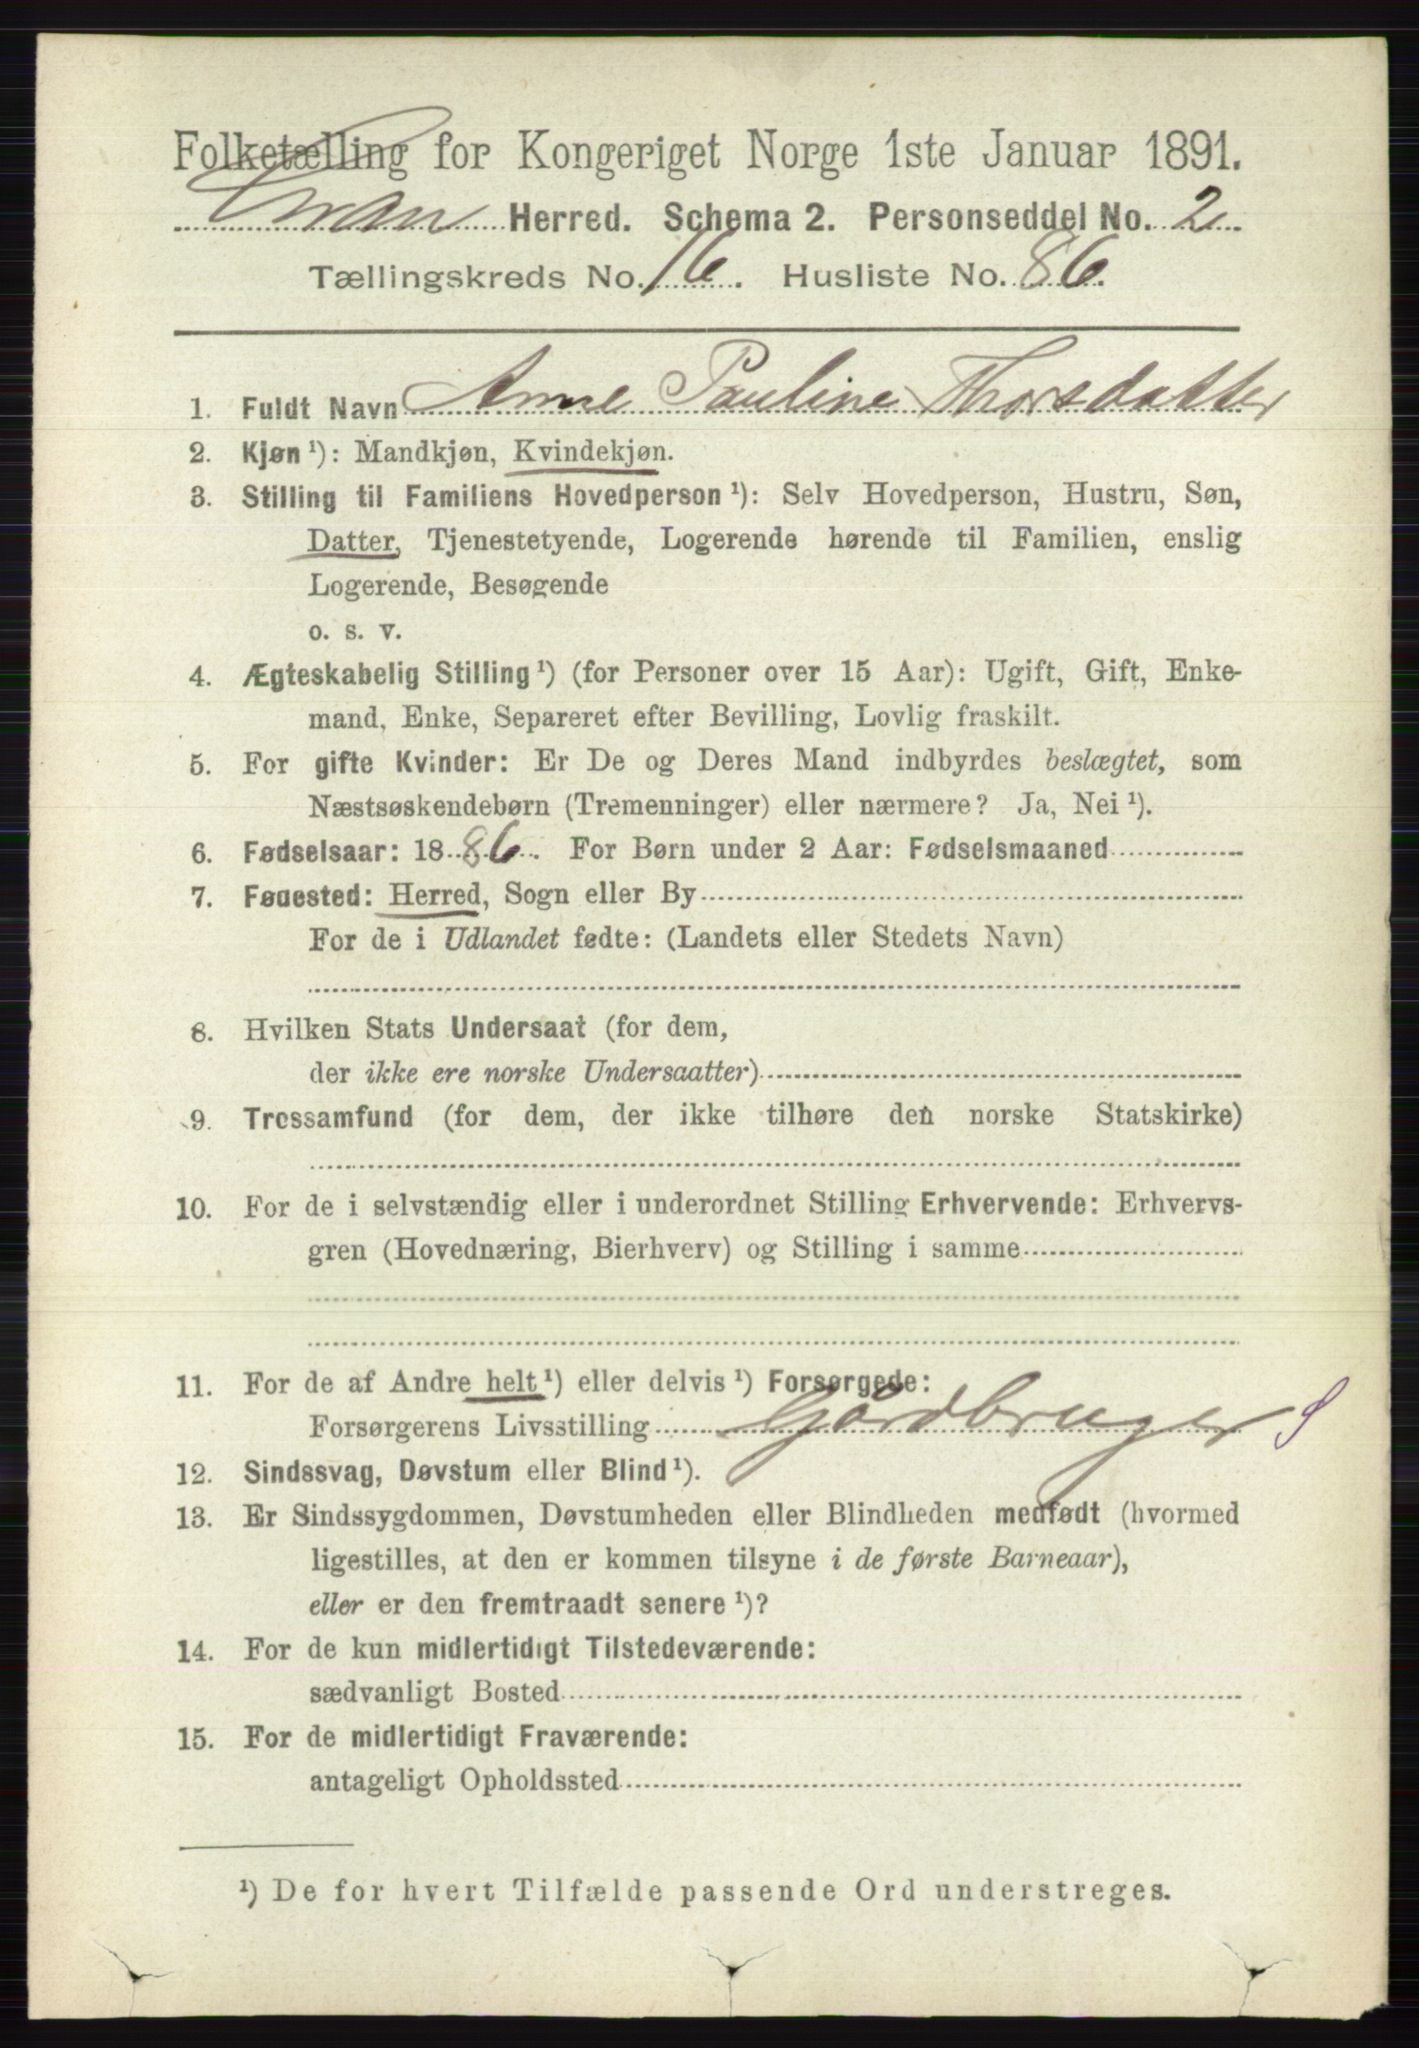 Folketælling for Kongeriget Norge 1ste Januar 1891.
Gran Herred. Schema 2. Personseddel No. 2
Tællingskreds No. 16. Husliste No. 86.
1. Fuldt Navn Anne Pauline Thorsdatter
2. Kjøn ¹): Mandkjøn, Kvindekjøn.
3. Stilling til Familiens Hovedperson ¹): Selv Hovedperson, Hustru, Søn,
Datter, Tjenestetyende, Logerende hørende til Familien, enslig
Logerende, Besøgende
o. s. v.
4. Ægteskabelig Stilling ¹) (for Personer over 15 Aar): Ugift, Gift, Enke-
mand, Enke, Separeret efter Bevilling, Lovlig fraskilt.
5. For gifte Kvinder: Er De og Deres Mand indbyrdes beslægtet, som
Næstsøskendebørn (Tremenninger) eller nærmere? Ja, Nei ¹).
6. Fødselsaar: 1886. For Børn under 2 Aar: Fødselsmaaned
7. Fødested: Herred, Sogn eller By
For de i Udlandet fødte: (Landets eller Stedets Navn)
8. Hvilken Stats Undersaat (for dem,
der ikke ere norske Undersaatter)
9. Trossamfund (for dem, der ikke tilhøre den norske Statskirke)
10. For de i selvstændig eller i underordnet Stilling Erhvervende: Erhvervs-
gren (Hovednæring, Bierhverv) og Stilling i samme
11. For de af Andre helt ¹) eller delvis ¹) Forsørgede:
Forsørgerens Livsstilling Gårdbruger
12. Sindssvag, Døvstum eller Blind ¹).
13. Er Sindssygdommen, Døvstumheden eller Blindheden medfødt (hvormed
ligestilles, at den er kommen tilsyne i de første Barneaar),
eller er den fremtraadt senere ¹)?
14. For de kun midlertidigt Tilstedeværende:
sædvanligt Bosted
15. For de midlertidigt Fraværende:
antageligt Opholdssted
¹) De for hvert Tilfælde passende Ord understreges.